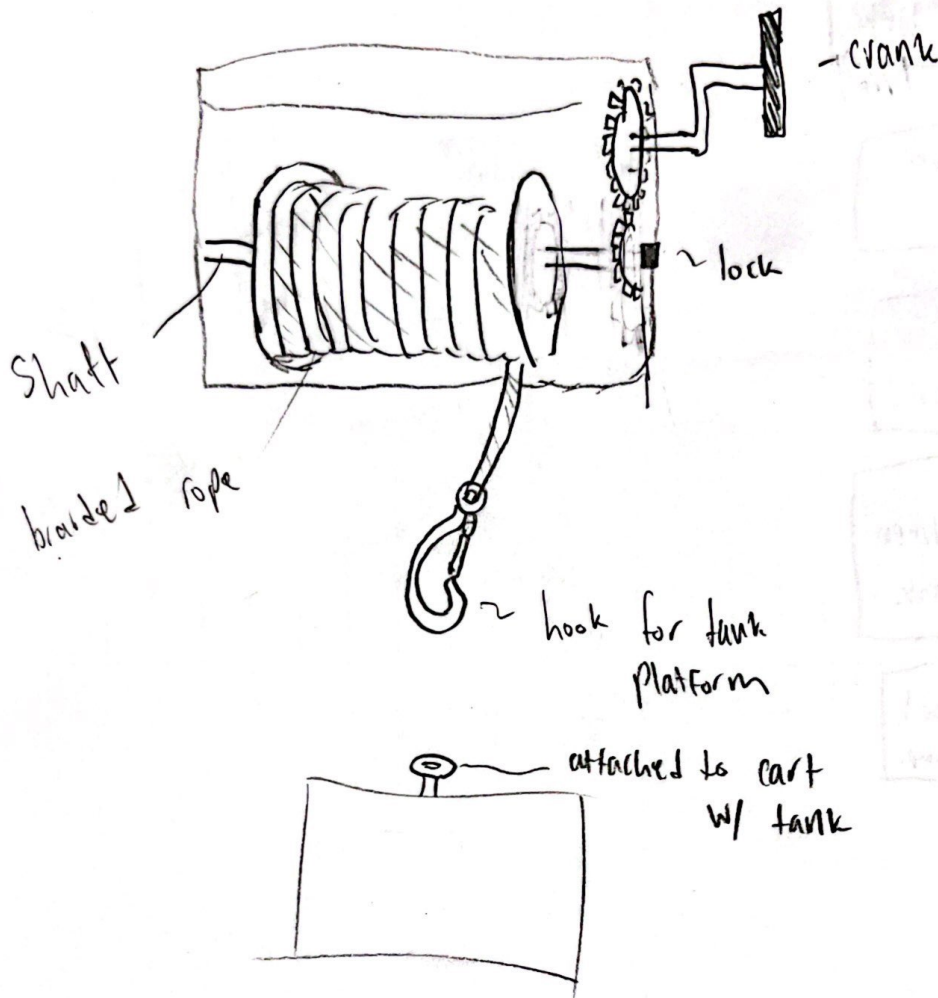 crank
lock
Shaft
braided rope
hook for tank
platform
attached to cart
w/ tank